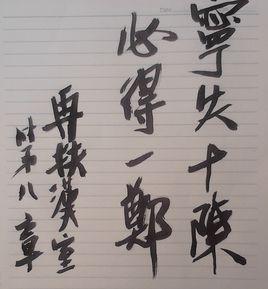 寧失十陳
必得一鄭
再扶漢室
付第八章